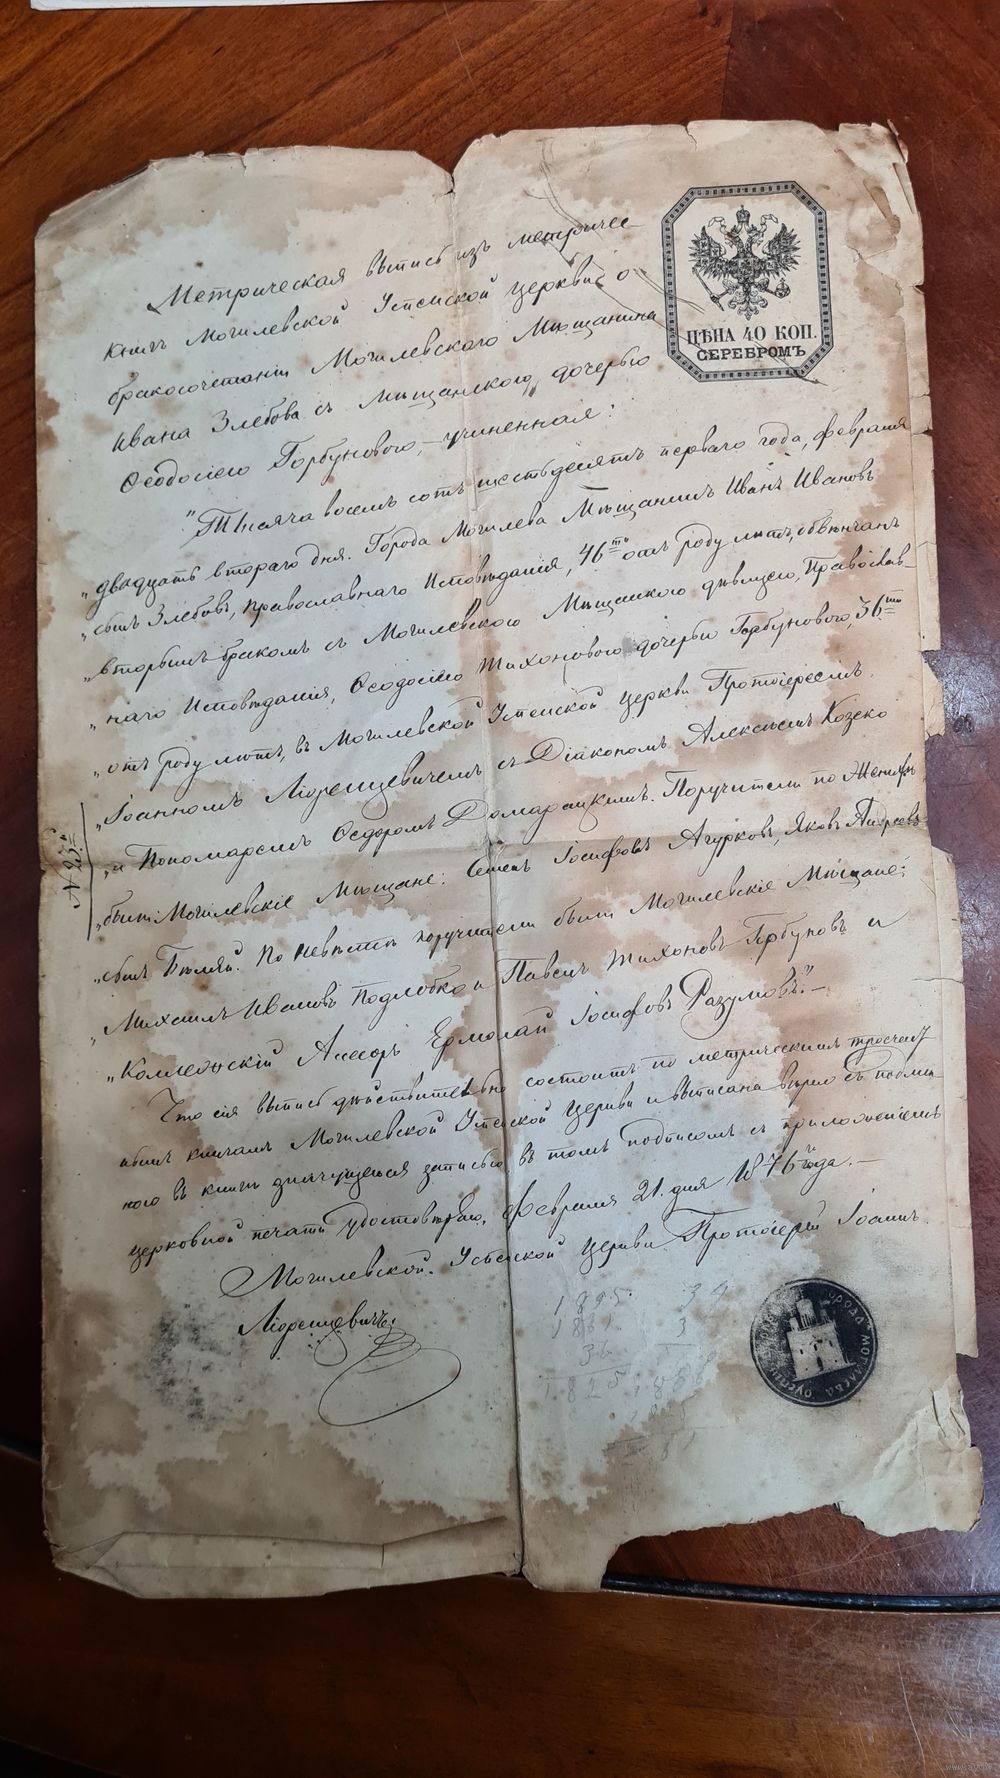 Метрическая выпись изъ метричес-
книгъ Могилевской Успенской церкви о
бракосочетаніи Могилевскаго Мѣщанина
Ивана Злебова съ мѣщанскою дочерью
Ѳеодосіею Горбуновою,- учиненная:
ЦѢНА 40 КОП.
СЕРЕБРОМЪ
"Тысяча восемь сотъ шестьдесятъ перваго года, февраля
"двадцать втораго дня. Города Могилева Мѣщанинъ Иванъ Ивановъ
"сынъ Злебовъ, Православнаго Исповѣданія, 46ти отъ роду лѣтъ, обвѣнчанъ
"вторымъ бракомъ съ Могилевскою Мѣщанскою дѣвицею, Православ-
"наго Исповѣданія, Ѳеодосіею Тихоновою дочерью Горбуновою, 36ти
"отъ роду лѣтъ, въ Могилевской Успенской церкви Протоіереемъ
"Іоанномъ съ Діакономъ Алексѣемъ Козеко
"и Пономаремъ Ѳедоромъ Домарацкимъ. Поручители по Женихѣ
"были: Могилевскіе Мѣщане: Семенъ Іосифовъ Агурковъ, Яковъ Андреевъ
"сынъ Бѣляй. По невѣстѣ поручители были Могилевскіе Мѣщане:
"Михаилъ Ивановъ Подлобко и Павелъ Тихоновъ Горбуновъ и
"Коллежскій Асесоръ Ермолай Іосифовъ Разумовъ."-
№ 27
Что сія выпись дѣйствительно состоитъ по метрическимъ
книгамъ Могилевской Успенской Церкви и выписана вѣрно съ подлин
наго въ книгѣ значущагося записью, въ томъ подписомъ съ приложеніемъ
церковной печати удостовѣряю, Февраля 21. дня 1876 года.-
Могилевской Успенской Церкви Протоіерей Іоаннъ
1895 34
1861 3
36
1825 1888
ГОРОДА МОГИЛЕВА УСПЕН